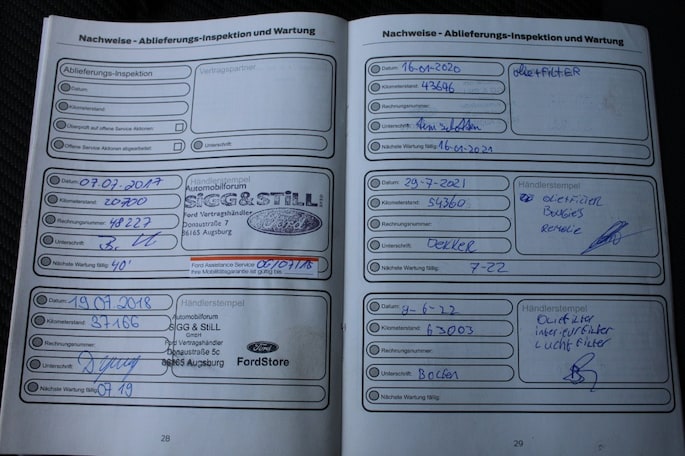 Nachweise - Ablieferungs-Inspektion und Wartung
Ablieferungs-Inspektion
Datum:
Kilometerstand:
Überprüft auf offene Service Aktionen:
Offene Service Aktionen abgearbeitet:
Vertragspartner
Unterschrift:
Datum: 07.07.2017
Kilometerstand: 20700
Rechnungsnummer: 48227
Unterschrift:
Nächste Wartung fällig: 40'
Händlerstempel
Automobilforum
SiGG & STiLL
Ford Vertragshändler
Donaustraße 7
86165 Augsburg
Ford Assistance Service 06/07/18
Ihre Mobilitätsgarantie ist gültig bis:
Datum: 19.07.2018
Kilometerstand: 37166
Rechnungsnummer:
Unterschrift:
Nächste Wartung fällig: 07.19
Händlerstempel
Automobilforum
SiGG & STiLL
GmbH
Ford Vertragshändler
Donaustraße 5c
86165 Augsburg
Ford
FordStore
28
Nachweise - Ablieferungs-Inspektion und Wartung
Datum: 16-01-2020
Kilometerstand: 43696
Rechnungsnummer:
Unterschrift:
Nächste Wartung fällig: 16-01-2021
olie+FiltER
Datum: 29-7-2021
Kilometerstand: 54360
Rechnungsnummer:
Unterschrift: DEKKER
Nächste Wartung fällig: 7-22
Händlerstempel
oliefilter
Bougies
Datum: 9-6-22
Kilometerstand: 63003
Rechnungsnummer:
Unterschrift:
Nächste Wartung fällig:
Händlerstempel
Oliefilter
interieurfilter
Luchtfilter
29